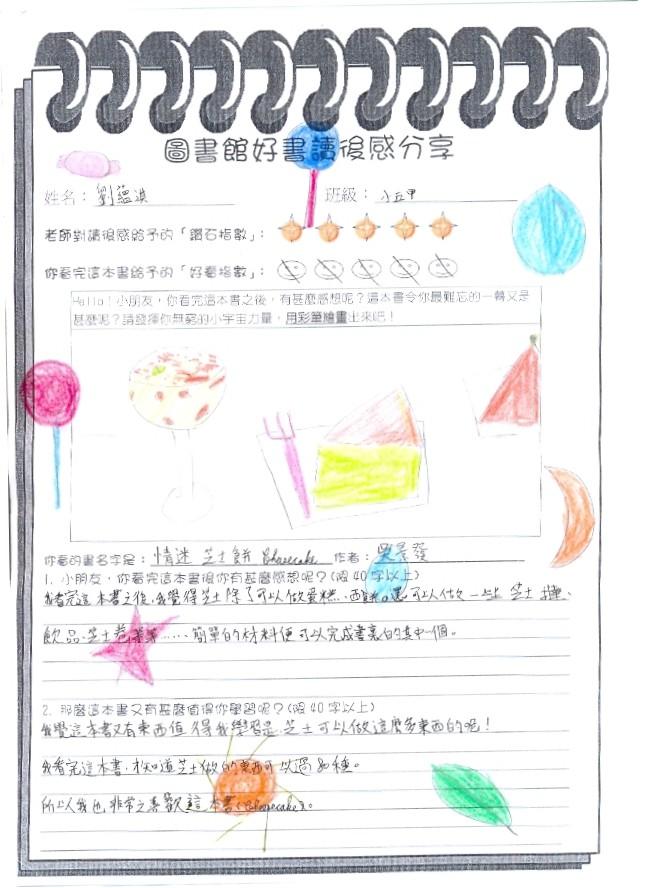 圖書館好書讀後感分享
姓名：劉蘊淇 班級：小五甲
老師對讀後感給予的「鑽石指數」：
你看完這本書給予的「好看指數」：
Hello！小朋友，你看完這本書之後，有甚麼感想呢？這本書令你最難忘的一幕又是
甚麼呢？請發揮你無窮的小宇宙力量，用彩筆繪畫出來吧！
你看的書名字是：情迷芝士餅 Cheesecake 作者：吳景發
1. 小朋友，你看完這本書後你有甚麼感想呢？(限 40 字以上)
我看完這本書之後，我覺得芝士除了可以做蛋糕、西餅。還可以做一些芝士撻、
飲品、芝士卷等等……簡單的材料便可以完成書裏的其中一個。
2. 那麼這本書又有甚麼值得你學習呢？(限 40 字以上)
我覺這本書又有東西值得我學習是，芝士可以做這麼多東西的呢！
我看完這本書，才知道芝士做的東西可以過80種。
所以我也非常之喜歡這本書《Cheesecake》。